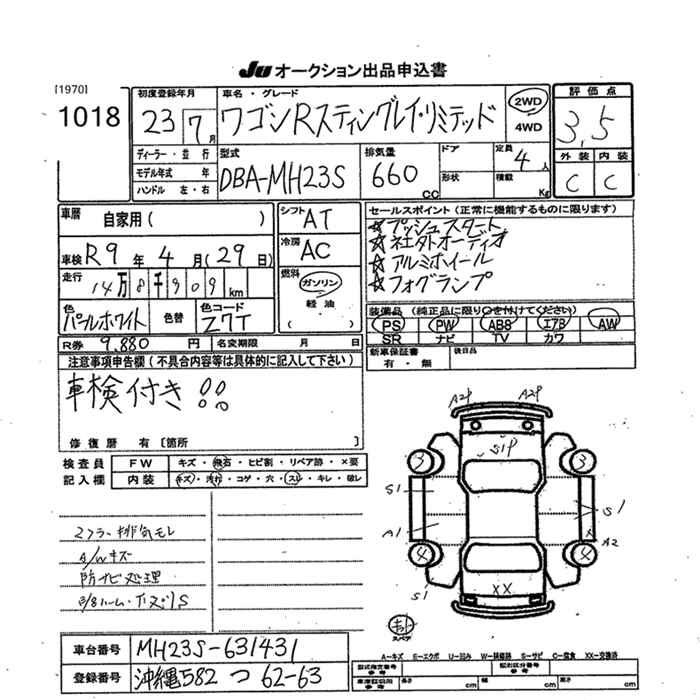 JU オークション出品申込書
[1970]
1018
初度登録年月
23 7月
車名・グレード
ワゴンRスティングレイ・リミテッド
2WD
4WD
評価点
3,5
外装 内装
C C
ディーラー・並行
モデル年式 年
ハンドル 左・右
型式
DBA-MH23S
排気量
660 CC
ドア
形状
定員
4人
積載
Kg
車歴 自家用( )
シフト AT
冷房 AC
車検 R9年4月(29日)
走行 14万8千909km
燃料 ガソリン
軽油
( )
色 パールホワイト 色替
色コード Z7T
R券 9,880円 名変期限 月 日
セールスポイント(正常に機能するものに限ります)
☆プッシュスタート
☆社外オーディオ
☆アルミホイール
☆フォグランプ
装備品(純正品に限り○を付けてください)
PS PW ABS エアB AW
SR ナビ TV カワ
新車保証書 後日品
有・無
注意事項申告欄(不具合内容等は具体的に記入して下さい)
車検付き!!
修復歴 有[箇所 ]
検査員 FW キズ・飛石・ヒビ割・リペア跡・×要
記入欄 内装 キズ・汚れ・コゲ・穴・スレ・キレ・破レ
マフラー排気モレ
A/Wキズ
防サビ処理
A2P A2P
S1P
3 3
S1 S1
A1 A2
4 4
S1
XX
キト
スペア
A-キズ E-エクボ U-凹み W-補修跡 S-サビ C-腐食 XX-交換済
車台番号 MH23S-631431
登録番号 沖縄582 つ 62-63
型式指定番号
参考
類別区分番号
参考
長さ cm 幅 cm 高さ cm